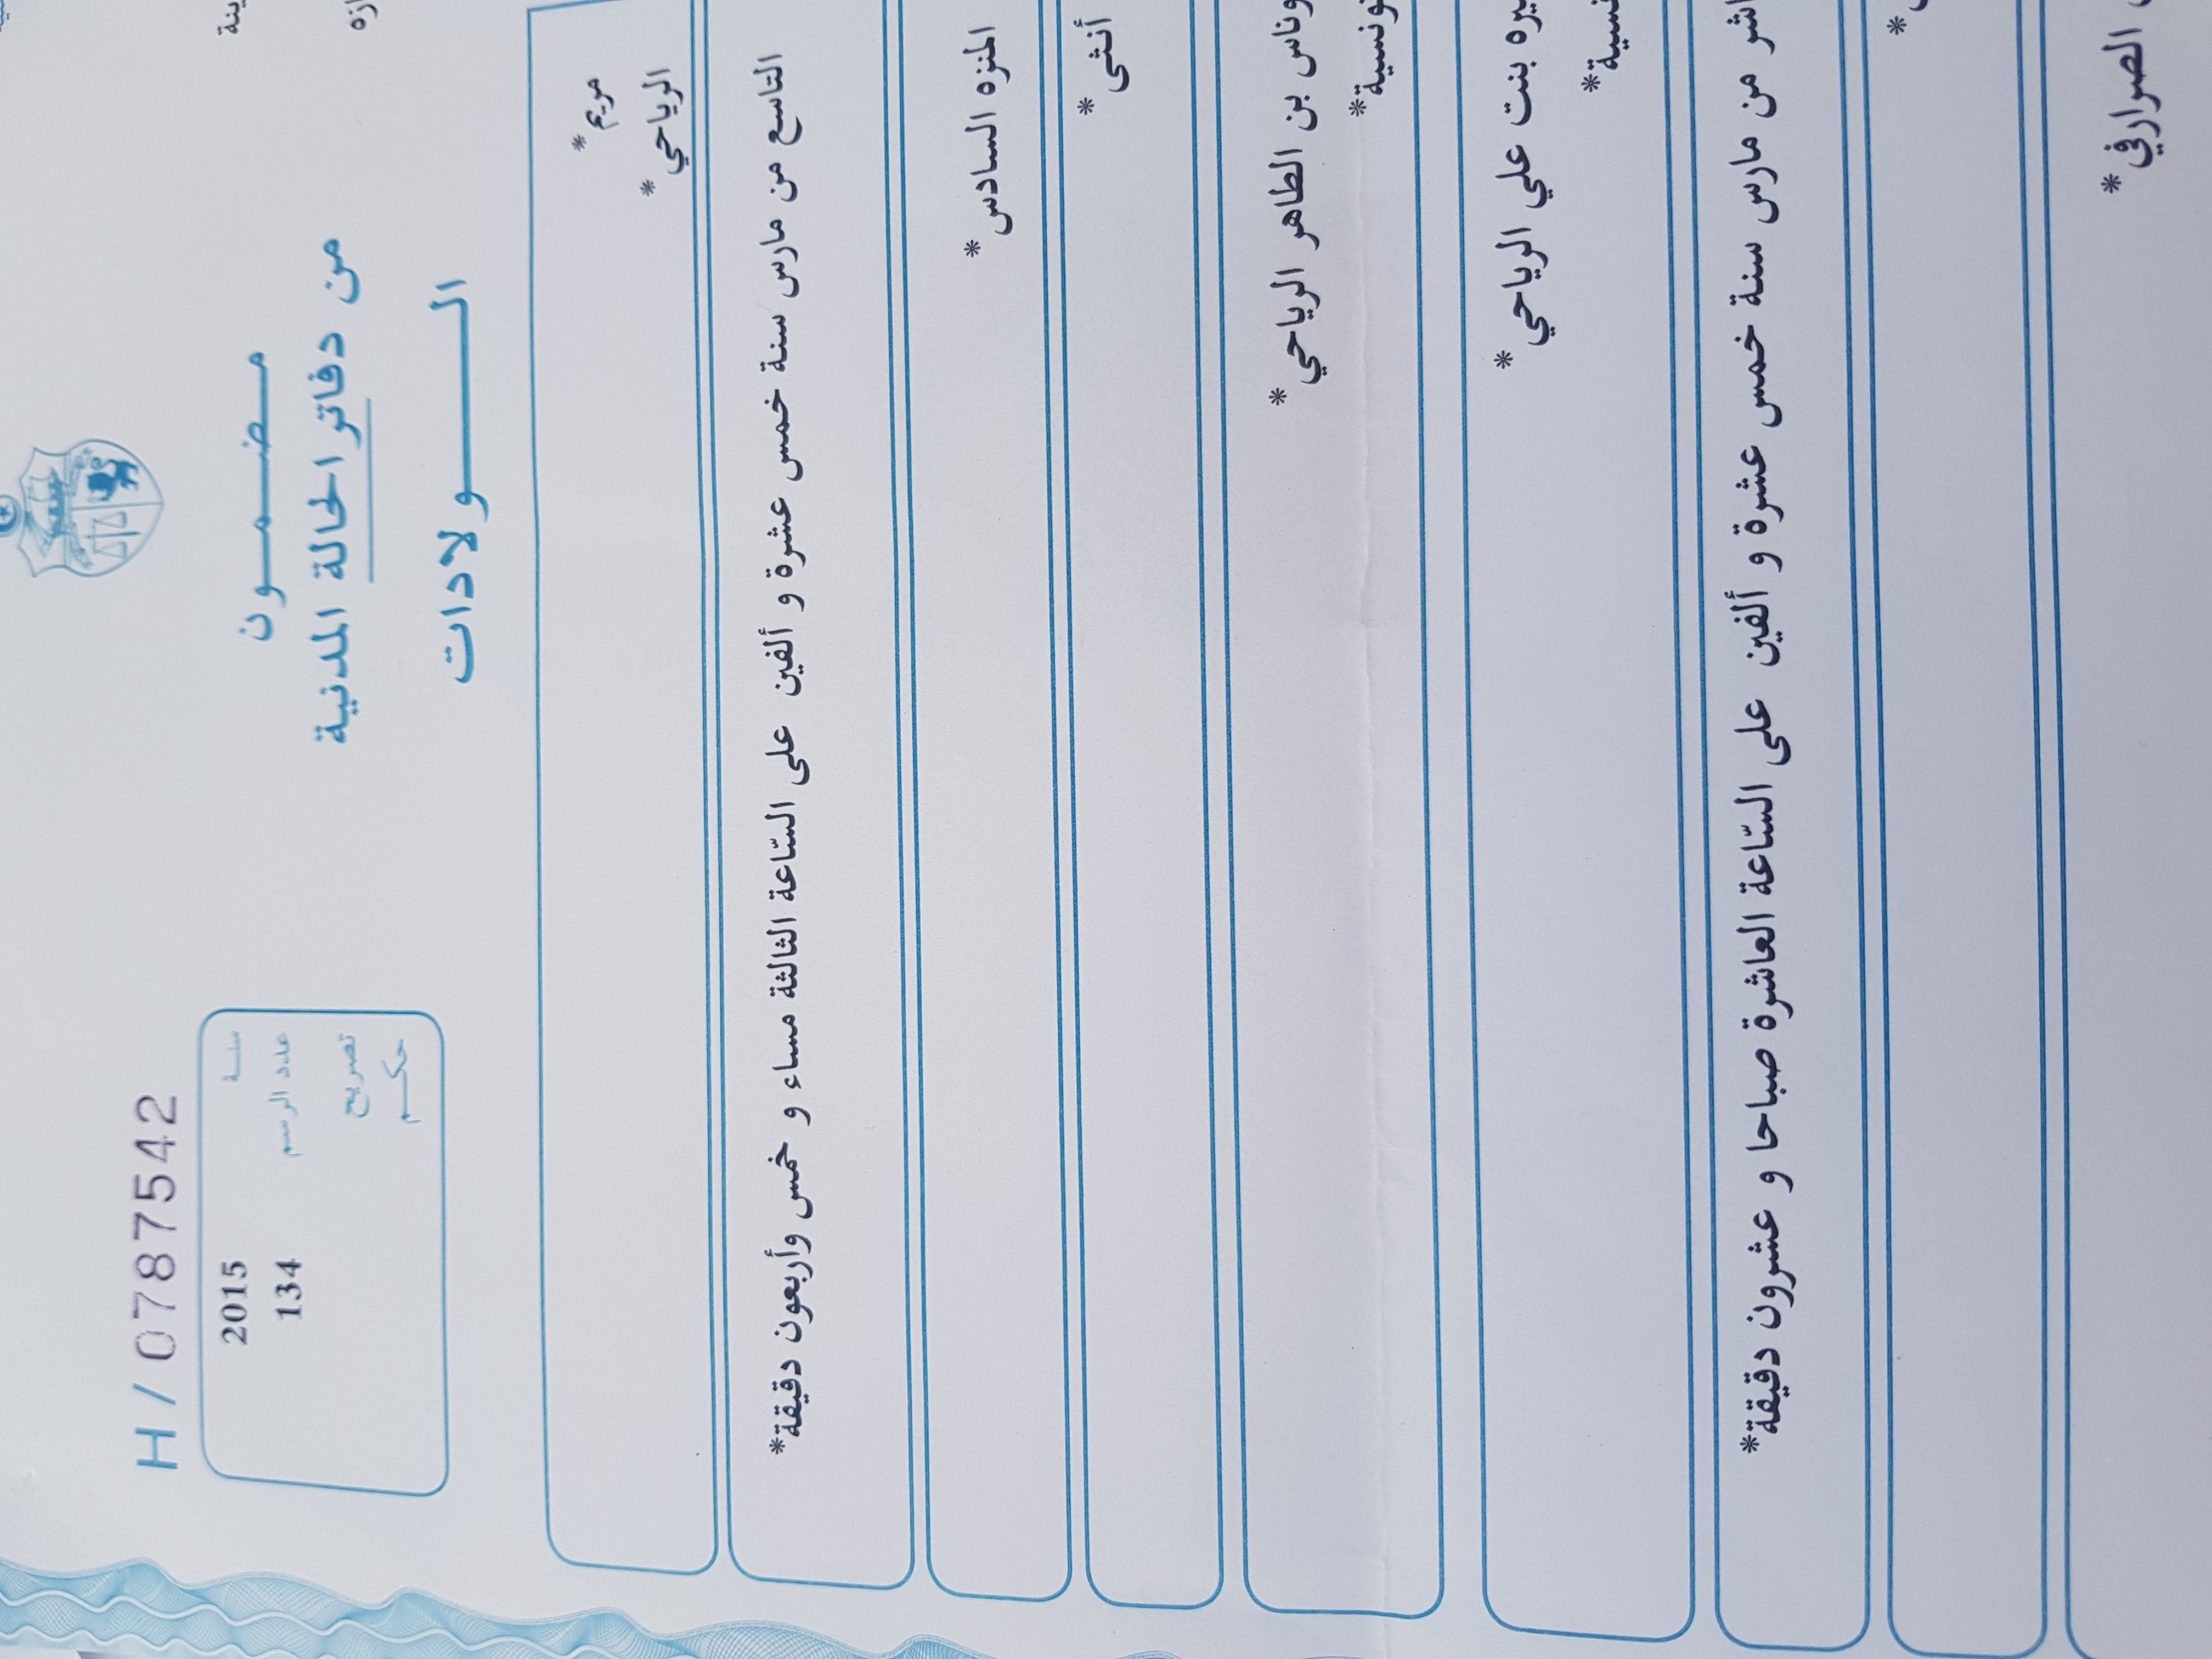 H / 0787542
سنة 2015
عدد الرسم 134
تصريح
حكم
مضمون
من دفاتر الحالة المدنية
الولادات
مريم *
الرياحي *
التاسع من مارس سنة خمس عشرة و ألفين على السّاعة الثالثة مساء و خمس وأربعون دقيقة*
المنزه السادس *
أنثى *
بن الطاهر الرياحي *
بنت علي الرياحي *
من مارس سنة خمس عشرة و ألفين على السّاعة العاشرة صباحا و عشرون دقيقة*
*
الصوارفي *